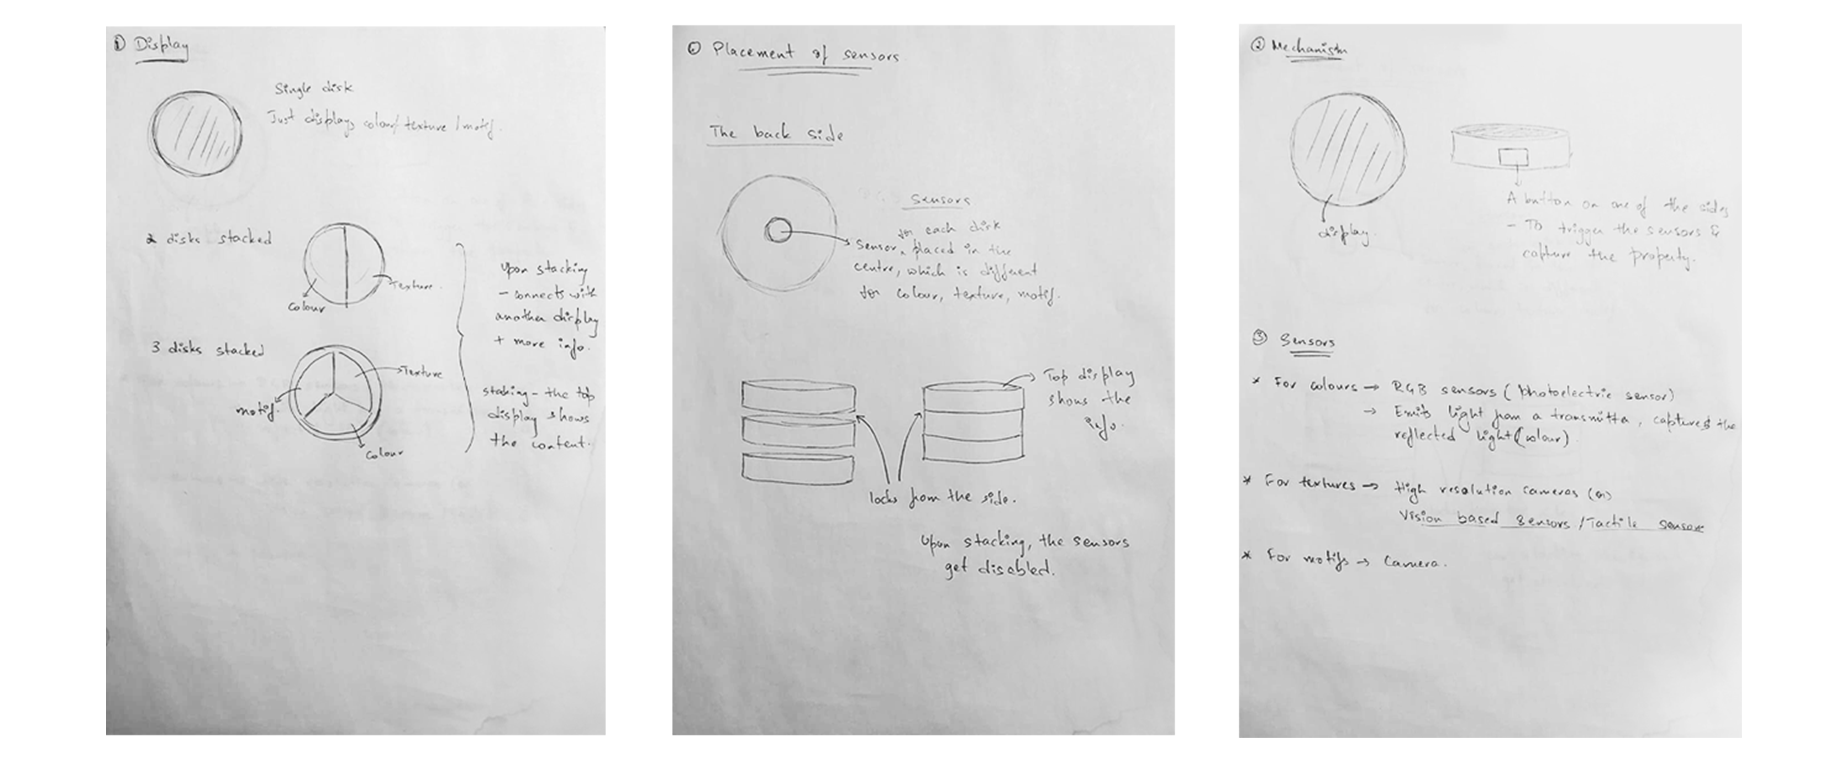 ① Display
Single disk
Just displays colour/ texture / motif.
2 disks stacked
Texture.
Colour
3 disks stacked
Texture
motif.
Colour
Upon stacking
- connects with
another display
+ more info.
staking - the top
display shows
the content.
Placement of sensors
The back side
Sensors
for each disk
Sensor ^ placed in the
centre, which is different
for colour, texture, motif.
Top display
shows the
info.
locks from the side.
Upon stacking, the sensors
get disabled.
② Mechanism
display.
A button on one of the sides
- To trigger the sensors &
capture the property.
③ Sensors
* For colours → RGB sensors (photoelectric sensor)
→ Emits light from a transmitter, captures the
reflected light (colour)
* For textures → High resolution cameras (or)
Vision based sensors / Tactile sensors
* For motifs → Camera.